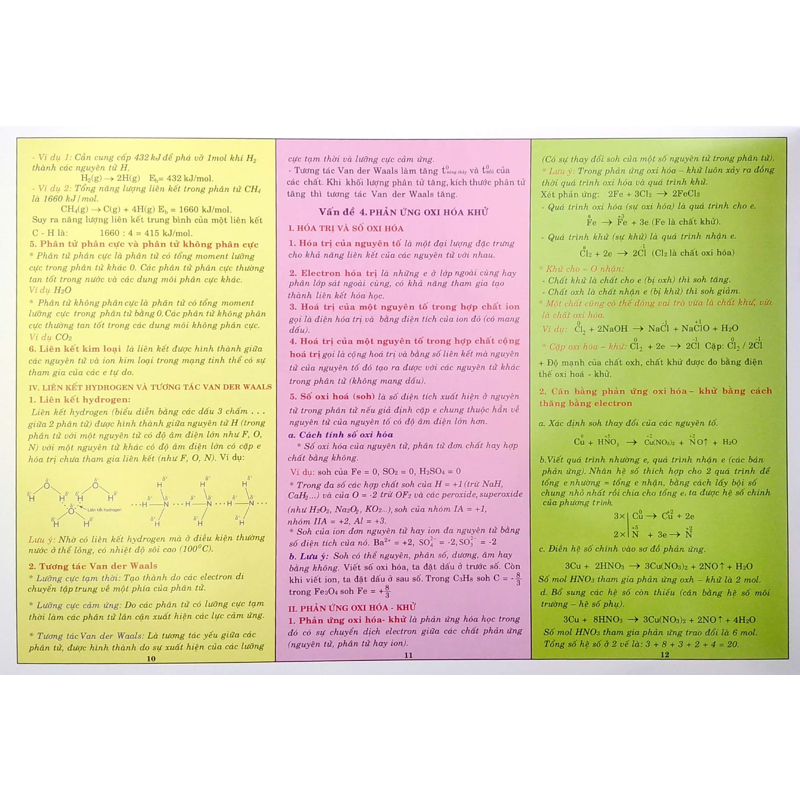 - Ví dụ 1: Cần cung cấp 432 kJ để phá vỡ 1mol khí H₂
thành các nguyên tử H.
H₂(g) → 2H(g) Eb = 432 kJ/mol.
- Ví dụ 2: Tổng năng lượng liên kết trong phân tử CH₄
là 1660 kJ/mol.
CH₄(g) → C(g) + 4H(g) Eb = 1660 kJ/mol.
Suy ra năng lượng liên kết trung bình của một liên kết
C - H là: 1660 : 4 = 415 kJ/mol.
5. Phân tử phân cực và phân tử không phân cực
* Phân tử phân cực là phân tử có tổng moment lưỡng
cực trong phân tử khác 0. Các phân tử phân cực thường
tan tốt trong nước và các dung môi phân cực khác.
Ví dụ H₂O
* Phân tử không phân cực là phân tử có tổng moment
lưỡng cực trong phân tử bằng 0. Các phân tử không phân
cực thường tan tốt trong các dung môi không phân cực.
Ví dụ CO₂
6. Liên kết kim loại là liên kết được hình thành giữa
các nguyên tử và ion kim loại trong mạng tinh thể có sự
tham gia của các e tự do.
IV. LIÊN KẾT HYDROGEN VÀ TƯƠNG TÁC VAN DER WAALS
1. Liên kết hydrogen:
Liên kết hydrogen (biểu diễn bằng các dấu 3 chấm . . .
giữa 2 phân tử) được hình thành giữa nguyên tử H (trong
phân tử với một nguyên tử có độ âm điện lớn như F, O,
N) với một nguyên tử khác có độ âm điện lớn có cặp e
hóa trị chưa tham gia liên kết (như F, O, N). Ví dụ:
Liên kết hydrogen
Lưu ý: Nhờ có liên kết hydrogen mà ở điều kiện thường
nước ở thể lỏng, có nhiệt độ sôi cao (100°C).
2. Tương tác Van der Waals
* Lưỡng cực tạm thời: Tạo thành do các electron di
chuyển tập trung về một phía của phân tử.
* Lưỡng cực cảm ứng: Do các phân tử có lưỡng cực tạm
thời làm các phân tử lân cận xuất hiện các lực cảm ứng.
* Tương tác Van der Waals: Là tương tác yếu giữa các
phân tử, được hình thành do sự xuất hiện của các lưỡng
10
cực tạm thời và lưỡng cực cảm ứng.
- Tương tác Van der Waals làm tăng t⁰ nóng chảy và t⁰ sôi của
các chất. Khi khối lượng phân tử tăng, kích thước phân tử
tăng thì tương tác Van der Waals tăng.
Vấn đề 4. PHẢN ỨNG OXI HÓA KHỬ
I. HÓA TRỊ VÀ SỐ OXI HÓA
1. Hóa trị của nguyên tố là một đại lượng đặc trưng
cho khả năng liên kết của các nguyên tử với nhau.
2. Electron hóa trị là những e ở lớp ngoài cùng hay
phân lớp sát ngoài cùng, có khả năng tham gia tạo
thành liên kết hóa học.
3. Hoá trị của một nguyên tố trong hợp chất ion
gọi là điện hóa trị và bằng điện tích của ion đó (có mang
dấu).
4. Hoá trị của một nguyên tố trong hợp chất cộng
hoá trị gọi là cộng hoá trị và bằng số liên kết mà nguyên
tử của nguyên tố đó tạo ra được với các nguyên tử khác
trong phân tử (không mang dấu).
5. Số oxi hoá (soh) là số điện tích xuất hiện ở nguyên
tử trong phân tử nếu giả định cặp e chung thuộc hẳn về
nguyên tử của nguyên tố có độ âm điện lớn hơn.
a. Cách tính số oxi hóa
* Số oxi hóa của nguyên tử, phân tử đơn chất hay hợp
chất bằng không.
Ví dụ: soh của Fe = 0, SO₂ = 0, H₂SO₄ = 0
* Trong đa số các hợp chất soh của H = +1 (trừ NaH,
CaH₂...) và của O = -2 trừ OF₂ và các peroxide, superoxide
(như H₂O₂, Na₂O₂, KO₂...), soh của nhóm IA = +1,
nhóm IIA = +2, Al = +3.
* Soh của ion đơn nguyên tử hay ion đa nguyên tử bằng
số điện tích của nó. Ba²⁺ = +2, SO₄⁻ = -2, SO₃⁻ = -2
b. Lưu ý: Soh có thể nguyên, phân số, dương, âm hay
bằng không. Viết số oxi hóa, ta đặt dấu ở trước số. Còn
khi viết ion, ta đặt dấu ở sau số. Trong C₃H₈ soh C = -8/3
trong Fe₃O₄ soh Fe = +8/3
II. PHẢN ỨNG OXI HÓA - KHỬ
1. Phản ứng oxi hóa- khử là phản ứng hóa học trong
đó có sự chuyển dịch electron giữa các chất phản ứng
(nguyên tử, phân tử hay ion).
11
(Có sự thay đổi soh của một số nguyên tử trong phân tử).
Xét phản ứng: 2Fe + 3Cl₂ → 2FeCl₃
* Lưu ý: Trong phản ứng oxi hóa – khử luôn xảy ra đồng
thời quá trình oxi hóa và quá trình khử.
- Quá trình oxi hóa (sự oxi hóa) là quá trình cho e.
Fe⁰ → Fe⁺³ + 3e (Fe là chất khử).
- Quá trình khử (sự khử) là quá trình nhận e.
Cl₂⁰ + 2e → 2Cl⁻¹ (Cl₂ là chất oxi hóa)
* Khử cho – O nhận:
- Chất khử là chất cho e (bị oxh) thì soh tăng.
- Chất oxh là chất nhận e (bị khử) thì soh giảm.
* Một chất cũng có thể đóng vai trò vừa là chất khử, vừa
là chất oxi hóa.
Ví dụ: Cl₂⁰ + 2NaOH → NaCl⁻¹ + NaCl⁺¹O + H₂O
* Cặp oxi hóa – khử: Cl₂⁰ + 2e → 2Cl⁻¹ Cặp: Cl₂⁰ / 2Cl⁻¹
+ Độ mạnh của chất oxh, chất khử được đo bằng điện
thế oxi hoá - khử.
2. Cân bằng phản ứng oxi hóa – khử bằng cách
thăng bằng electron
a. Xác định soh thay đổi của các nguyên tố.
Cu⁰ + HN⁺⁵O₃ → Cu⁺²(NO₃)₂ + N⁺²O↑ + H₂O
b.Viết quá trình nhường e, quá trình nhận e (các bán
phản ứng). Nhân hệ số thích hợp cho 2 quá trình để
tổng e nhường = tổng e nhận, bằng cách lấy bội số
chung nhỏ nhất rồi chia cho tổng e, ta được hệ số chính
của phương trình.
3×| Cu⁰ → Cu⁺² + 2e
2×| N⁺⁵ + 3e → N⁺²
c. Điền hệ số chính vào sơ đồ phản ứng.
3Cu + 2HNO₃ → 3Cu(NO₃)₂ + 2NO↑ + H₂O
Số mol HNO₃ tham gia phản ứng oxh – khử là 2 mol.
d. Bổ sung các hệ số còn thiếu (cân bằng hệ số môi
trường – hệ số phụ).
3Cu + 8HNO₃ → 3Cu(NO₃)₂ + 2NO↑ + 4H₂O
Số mol HNO₃ tham gia phản ứng trao đổi là 6 mol.
Tổng số hệ số ở 2 vế là: 3 + 8 + 3 + 2 + 4 = 20.
12